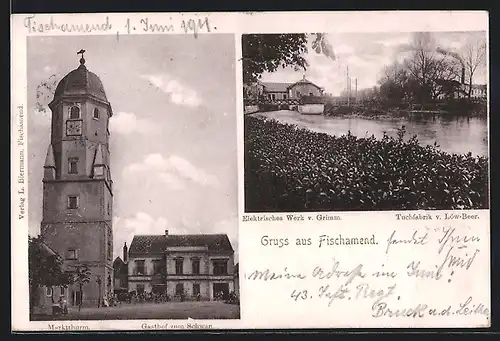 Fischamend, 1. Juni 1911.
Verlag L. Biermann, Fischamend.
Marktthurm.
Gasthof zum Schwan.
Elektrisches Werk v. Grimm.
Tuchfabrik v. Löw-Beer.
Gruss aus Fischamend.
sendet Ihnen
Meine Adresse im Juni:
43. Inft. Regt.
Bruck a. d. Leitha